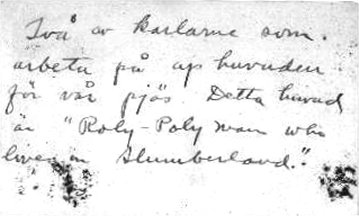 Två av karlarne som.
arbeta på ap huvuden
för vår pjäs. Detta huvud
är "Roly-Poly man who
lives in Slumberland."